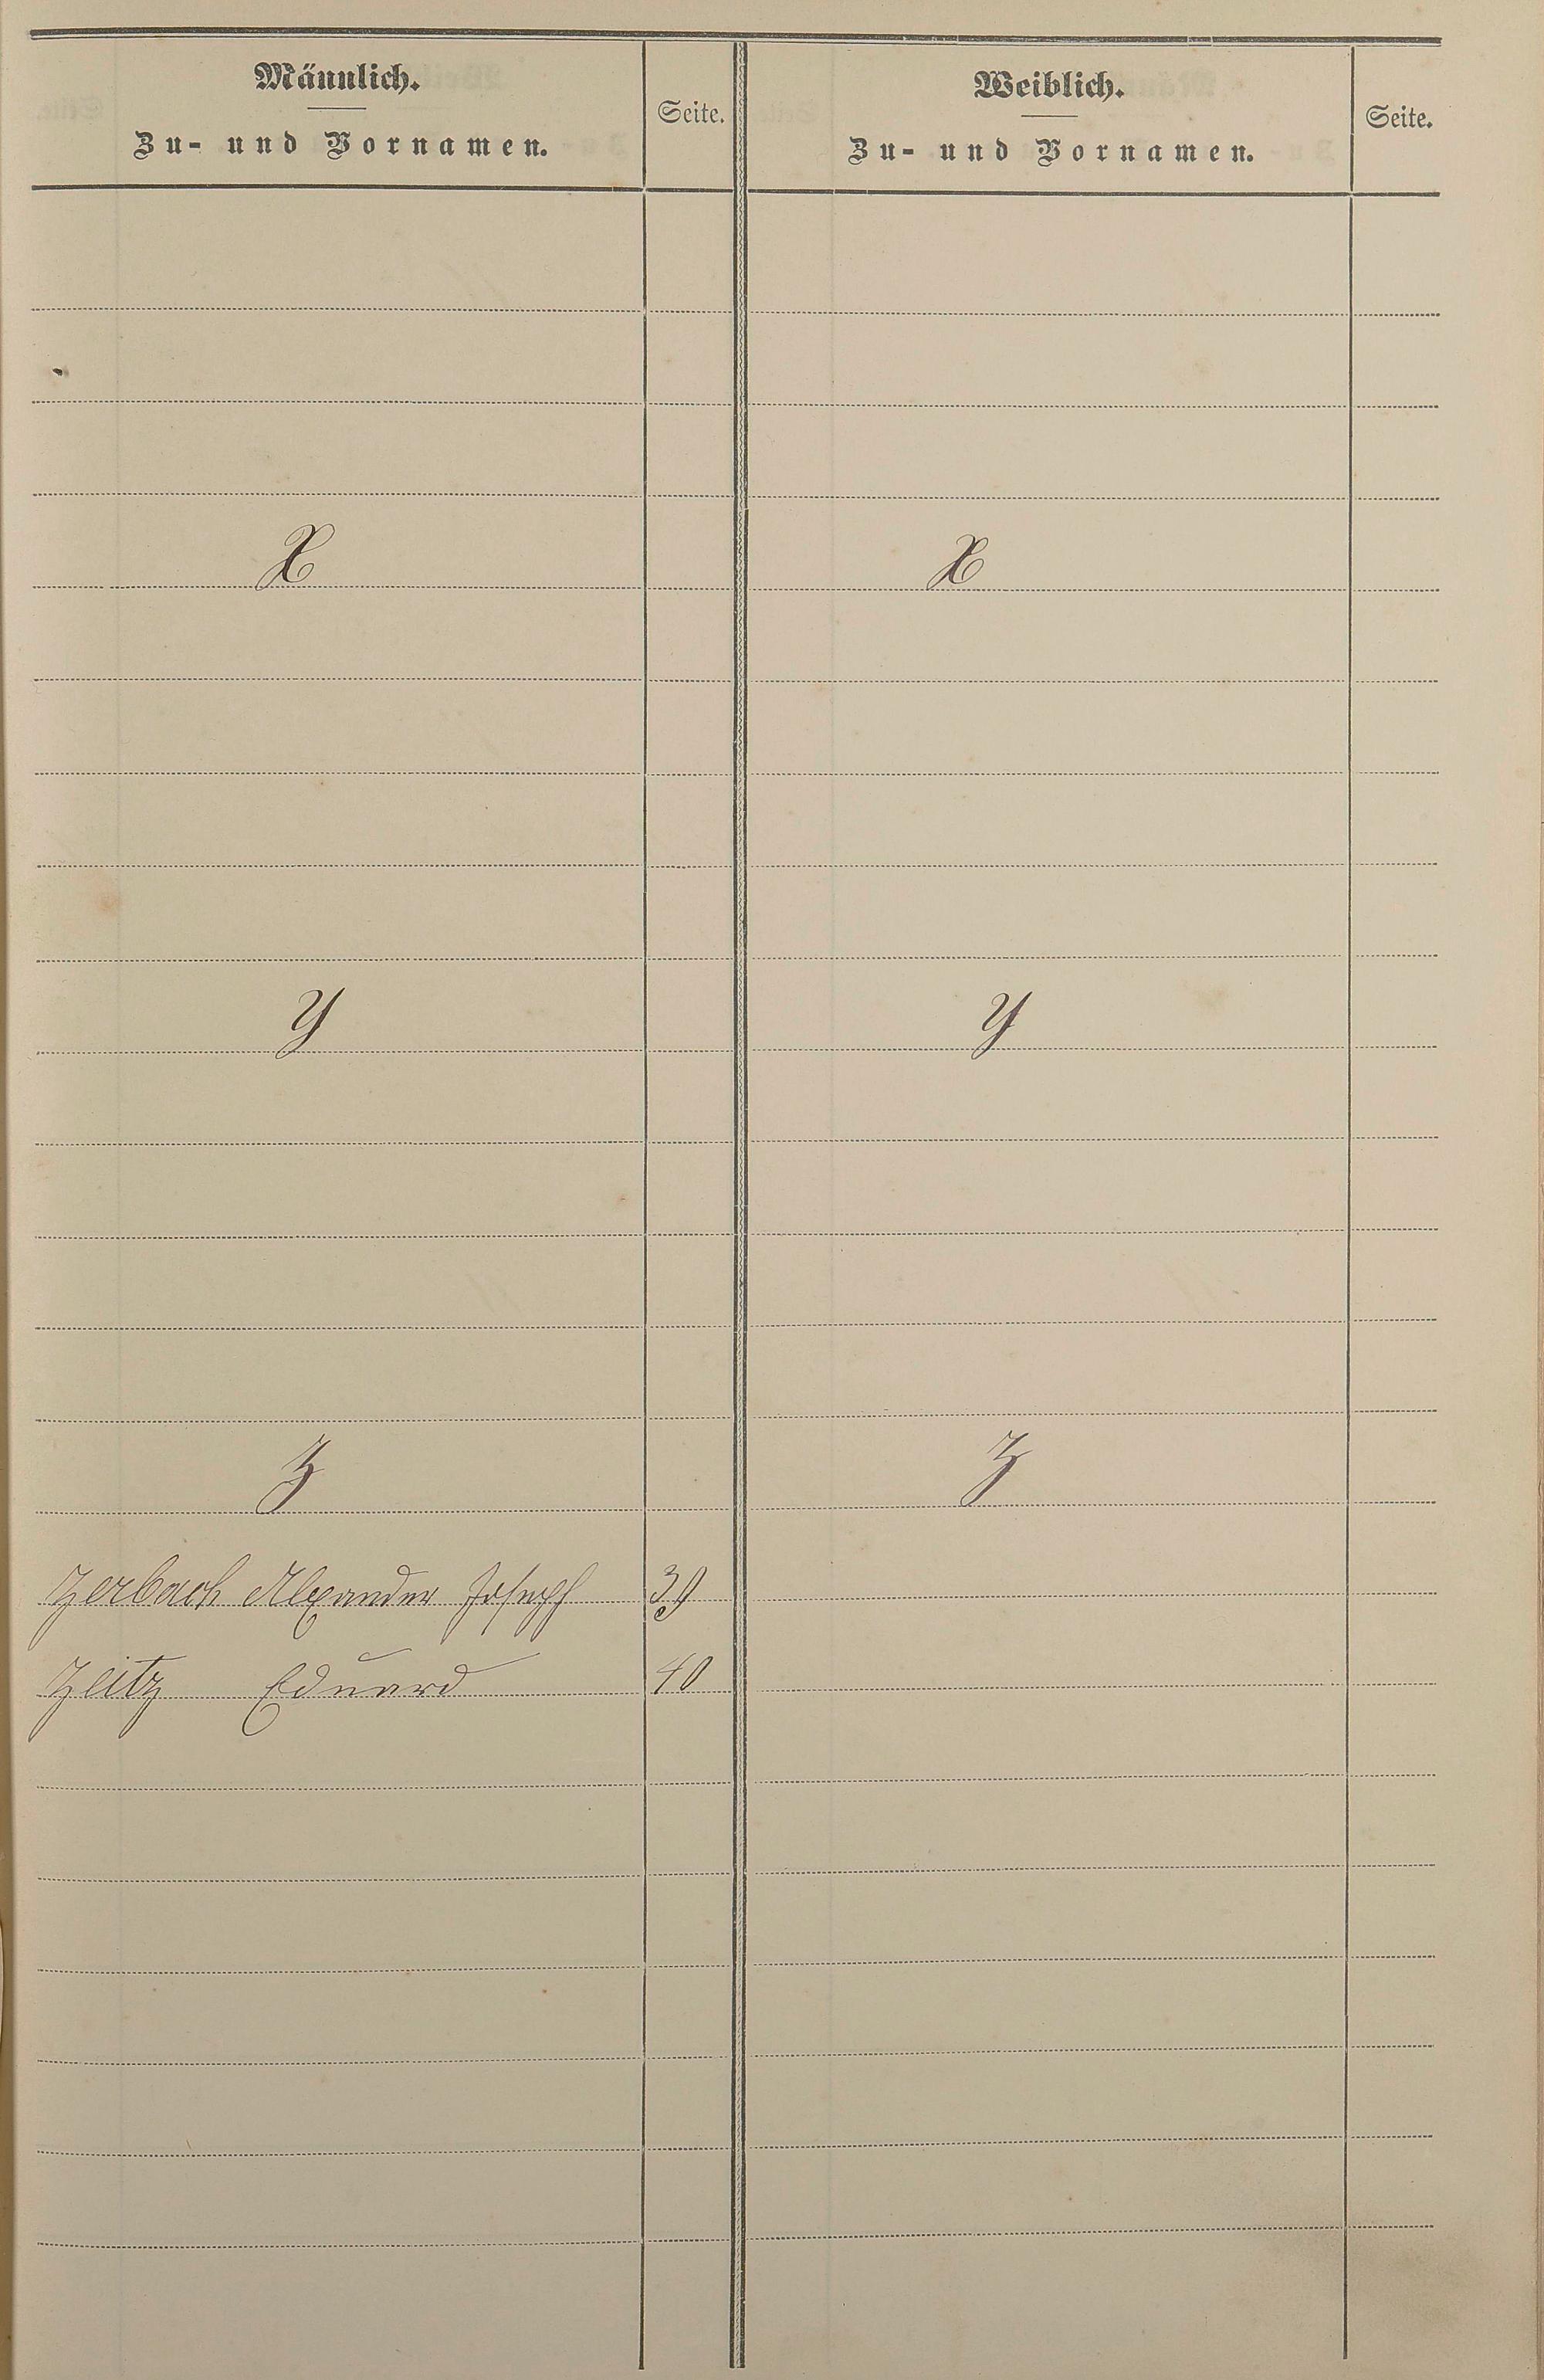 Männlich.
Zu- und Vornamen.
Seite.
Weiblich.
Zu- und Vornamen.
Seite.
X
X
Y
Y
Z
Z
Zerbach Alexander Joseph 39
Zeitz Eduard 40